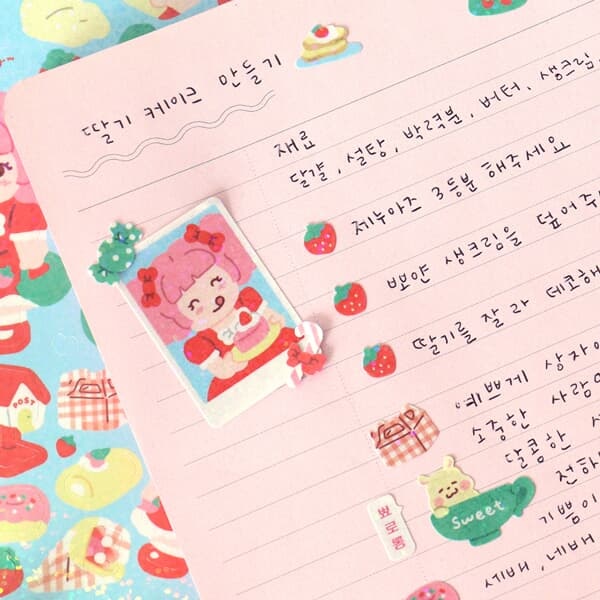 딸기 케이크 만들기
재료
달걀, 설탕, 박력분, 버터, 생크림,
제누아즈 3등분 해주세요
뽀얀 생크림을 덮어주
딸기를 잘라 데코해
예쁘게 상자에
소중한 사람
달콤한
전하
Sweet
뾰로롱
기쁨이
세배, 네배
POST